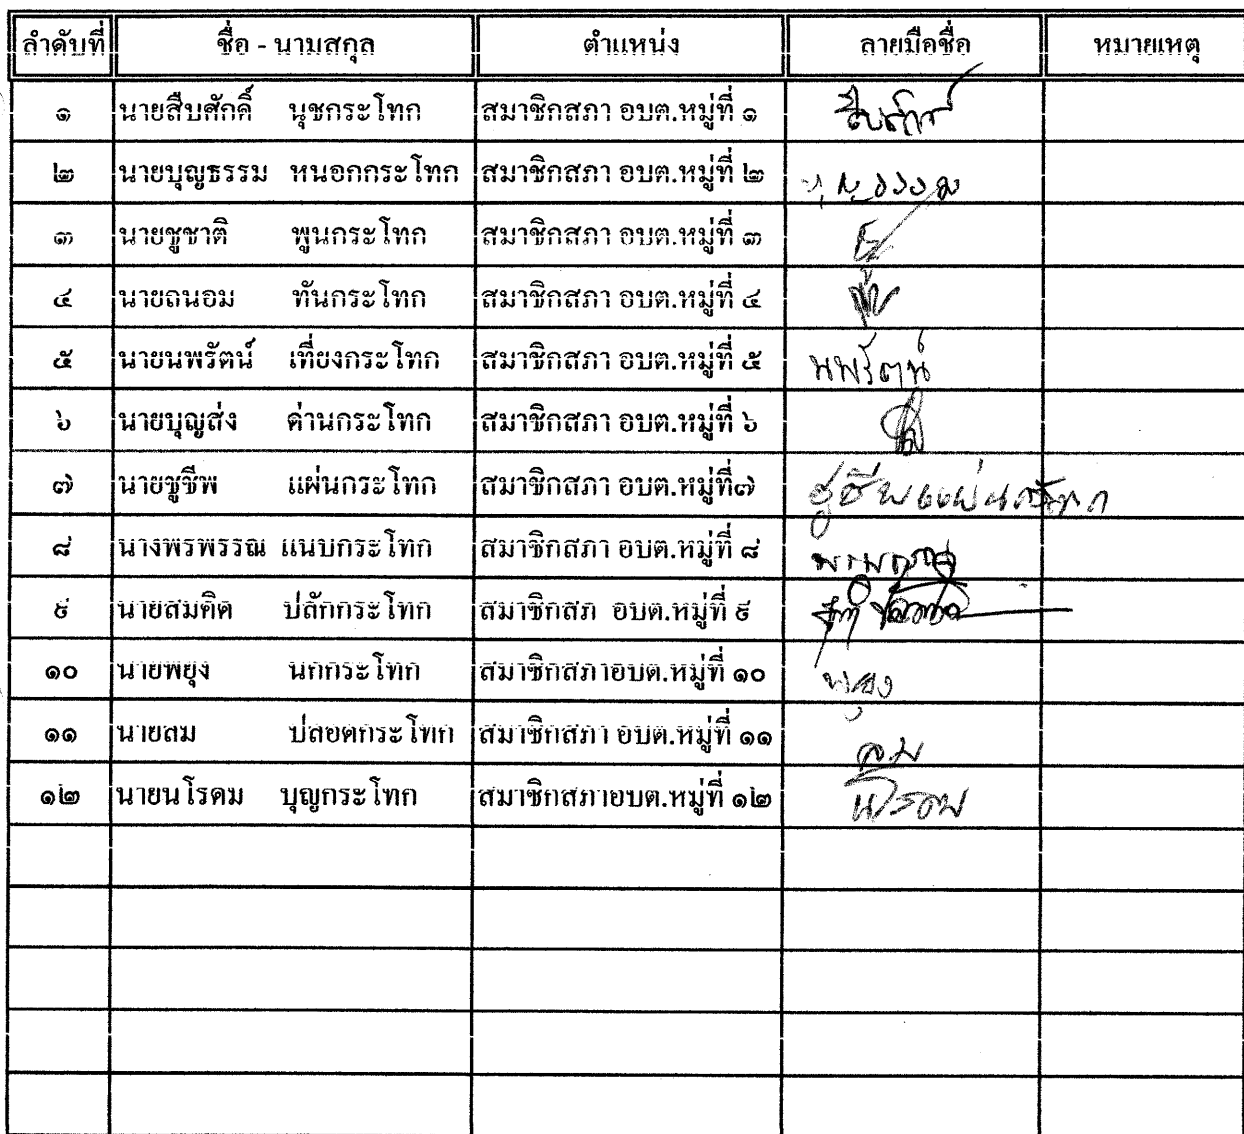 ลำดับที่ ชื่อ - นามสกุล ตำแหน่ง ลายมือชื่อ หมายเหตุ
๑ นายสืบศักดิ์ นุชกระโทก สมาชิกสภา อบต.หมู่ที่ ๑ สืบศักดิ์
๒ นายบุญธรรม หนอกกระโทก สมาชิกสภา อบต.หมู่ที่ ๒ บุญธรรม
๓ นายชูชาติ พูนกระโทก สมาชิกสภา อบต.หมู่ที่ ๓
๔ นายถนอม ทันกระโทก สมาชิกสภา อบต.หมู่ที่ ๔
๕ นายนพรัตน์ เที่ยงกระโทก สมาชิกสภา อบต.หมู่ที่ ๕ นพรัตน์
๖ นายบุญส่ง ด่านกระโทก สมาชิกสภา อบต.หมู่ที่ ๖
๗ นายชูชีพ แผ่นกระโทก สมาชิกสภา อบต.หมู่ที่๗ ชูชีพ แผ่นกระโทก
๘ นางพรพรรณ แนบกระโทก สมาชิกสภา อบต.หมู่ที่ ๘
๙ นายสมคิด ปลักกระโทก สมาชิกสภ อบต.หมู่ที่ ๙
๑๐ นายพยุง นกกระโทก สมาชิกสภาอบต.หมู่ที่ ๑๐ พยุง
๑๑ นายลม ปลอดกระโทก สมาชิกสภา อบต.หมู่ที่ ๑๑ ลม
๑๒ นายนโรดม บุญกระโทก สมาชิกสภาอบต.หมู่ที่ ๑๒ นโรดม